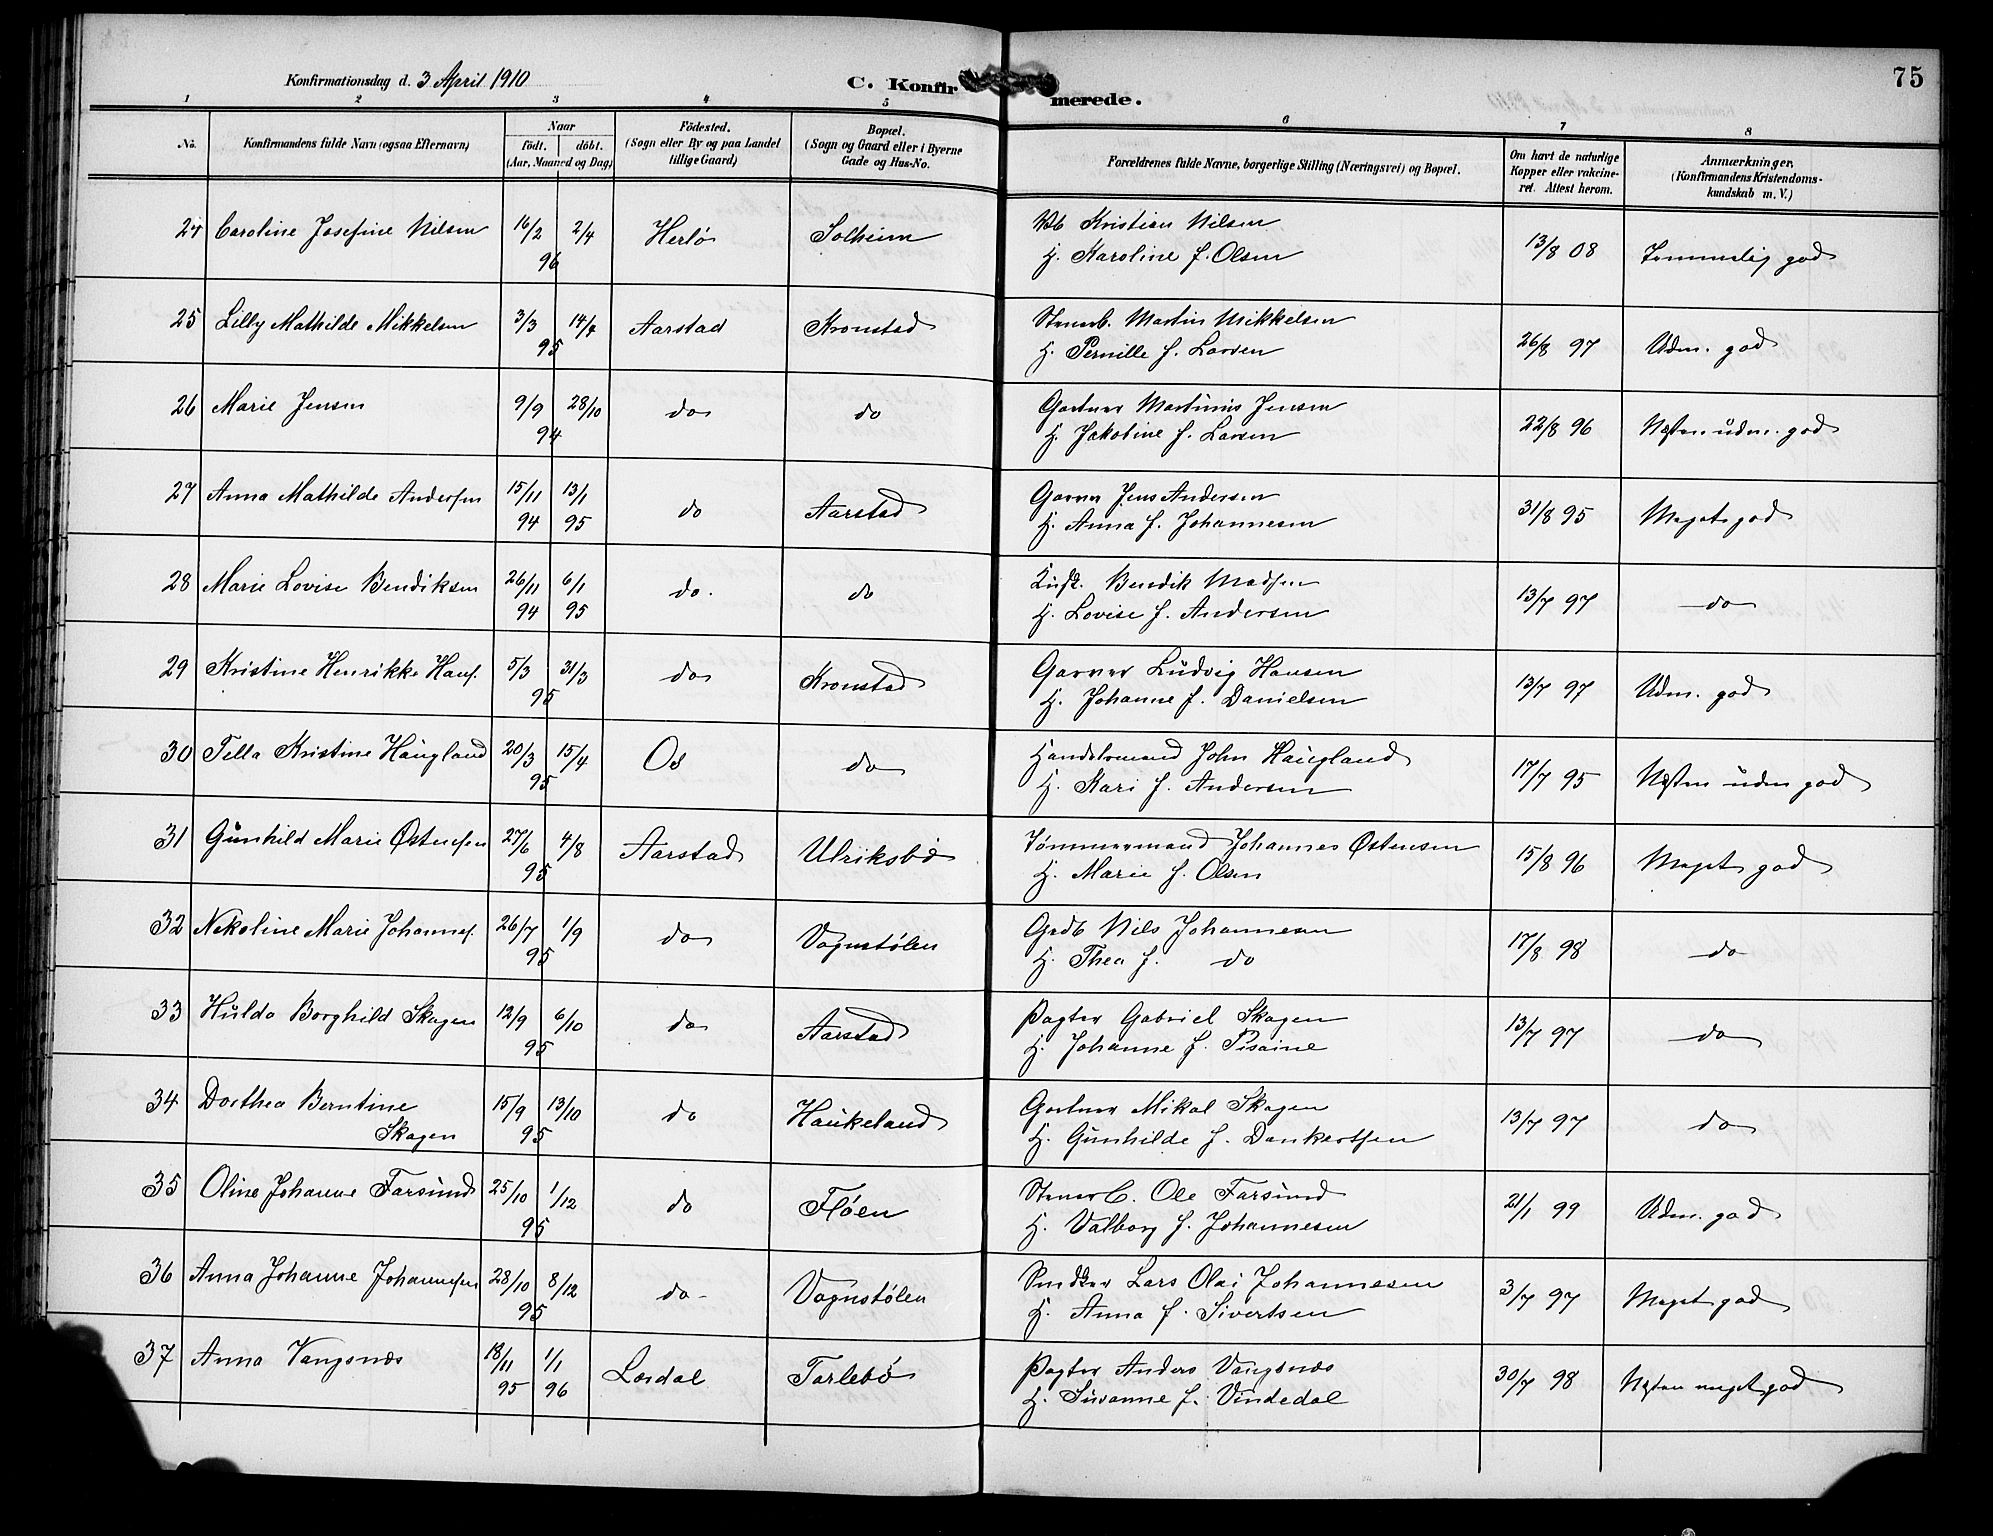 75
Konfirmationsdag d. 3 April 1910
C. Konfirmerede.
1 2 3 4 5 6 7 8
No. | Konfirmandens fulde Navn (ogsaa Efternavn) | Naar födt. döbt. (Aar, Maaned og Dag) | Födested. (Sogn eller By og paa Landet tillige Gaard) | Bopæl. (Sogn og Gaard eller i Byerne Gade og Hus-No. | Forældrenes fulde Navne, borgerlige Stilling (Næringsvei) og Bopæl. | Om havt de naturlige Kopper eller vakcineret. Attest herom. | Anmærkninger. (Konfirmandens Kristendomskundskab m. V.)
24 Caroline Josefine Nilsen 16/2 2/4 96 Herlø Solheim Kristian Nilsen 13/8 08 Temmelig god
H. Karoline f. Olsen
25 Lilly Mathilde Mikkelsen 3/3 14/4 95 Aarstad Kronstad Stenarb. Martin Mikkelsen 26/8 97 Udm. god
H. Pernille f. Larsen
26 Marie Jensen 9/9 28/10 94 do do Gartner Martinus Jensen 22/8 96 Næsten udm. god
H. Jakobine f. Larsen
27 Anna Mathilde Andersen 15/11 94 13/1 95 do Aarstad Garver Jens Andersen 31/8 95 Meget god
H. Anna f. Johannesen
28 Marie Lovise Bendiksen 26/11 94 6/1 95 do. do Kusk. Bendik Madsen 13/7 97 do
H. Lovise f. Andersen
29 Kristine Henrikke Hans. 5/3 31/3 95 do Kronstad Garver Ludvig Hansen 13/7 97 Udm. god
H. Johanne f. Danielsen
30 Tella Kristine Haugland 20/3 15/4 95 Os do Handelsmand John Haugland 17/7 95 Næsten udm god
H. Kari f. Andersen
31 Gunhild Marie Østensen 27/6 4/8 95 Aarstad Ulriksbø Tømmermand Johannes Østensen 15/8 96 Meget god
H. Marie f. Olsen
32 Nekoline Marie Johannes. 26/7 1/9 95 do Vognstølen Grdb Nils Johannesen 17/8 98 do
H. Thea f. do
33 Hulda Borghild Skagen 12/9 6/10 95 do Aarstad Pagter Gabriel Skagen 13/7 97 do
H. Johanne f. Pisaine
34 Dorthea Berntine Skagen 15/9 13/10 95 do Haukeland Gartner Mikal Skagen 13/7 97 do
H. Gunhilde f. Dankertsen
35 Oline Johanne Farsund 25/10 1/12 95 do Fløen Stenarb. Ole Farsund 21/1 99 Udm. god
H. Valborg f. Johannesen
36 Anna Johanne Johannesen 28/10 8/12 95 do Vognstølen Snedker Lars Olai Johannesen 3/7 97 Meget god
H. Anna f. Sivertsen
37 Anna Vangsnæs 18/11 95 1/1 96 Lærdal Tarlebø Pagter Anders Vangsnæs 30/7 98 Næsten meget god
H. Susanne f. Vindedal